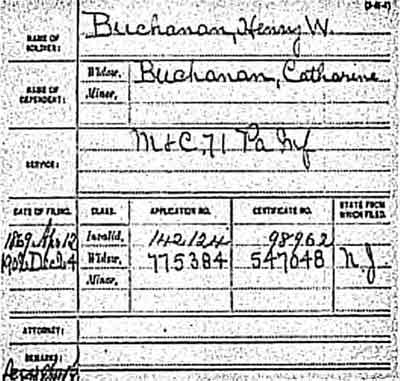 (3-M-4)
NAME OF SOLDIER: Buchanan, Henry W.
NAME OF DEPENDENT: Widow, Buchanan, Catharine
Minor,
SERVICE: M & C, 71 Pa Inf
DATE OF FILING. CLASS. APPLICATION NO. CERTIFICATE NO. STATE FROM WHICH FILED.
1869 Apr 12 Invalid, 142124 98962
1902 Dec 24 Widow, 775384 547048 N.J.
Minor,
ATTORNEY:
REMARKS: